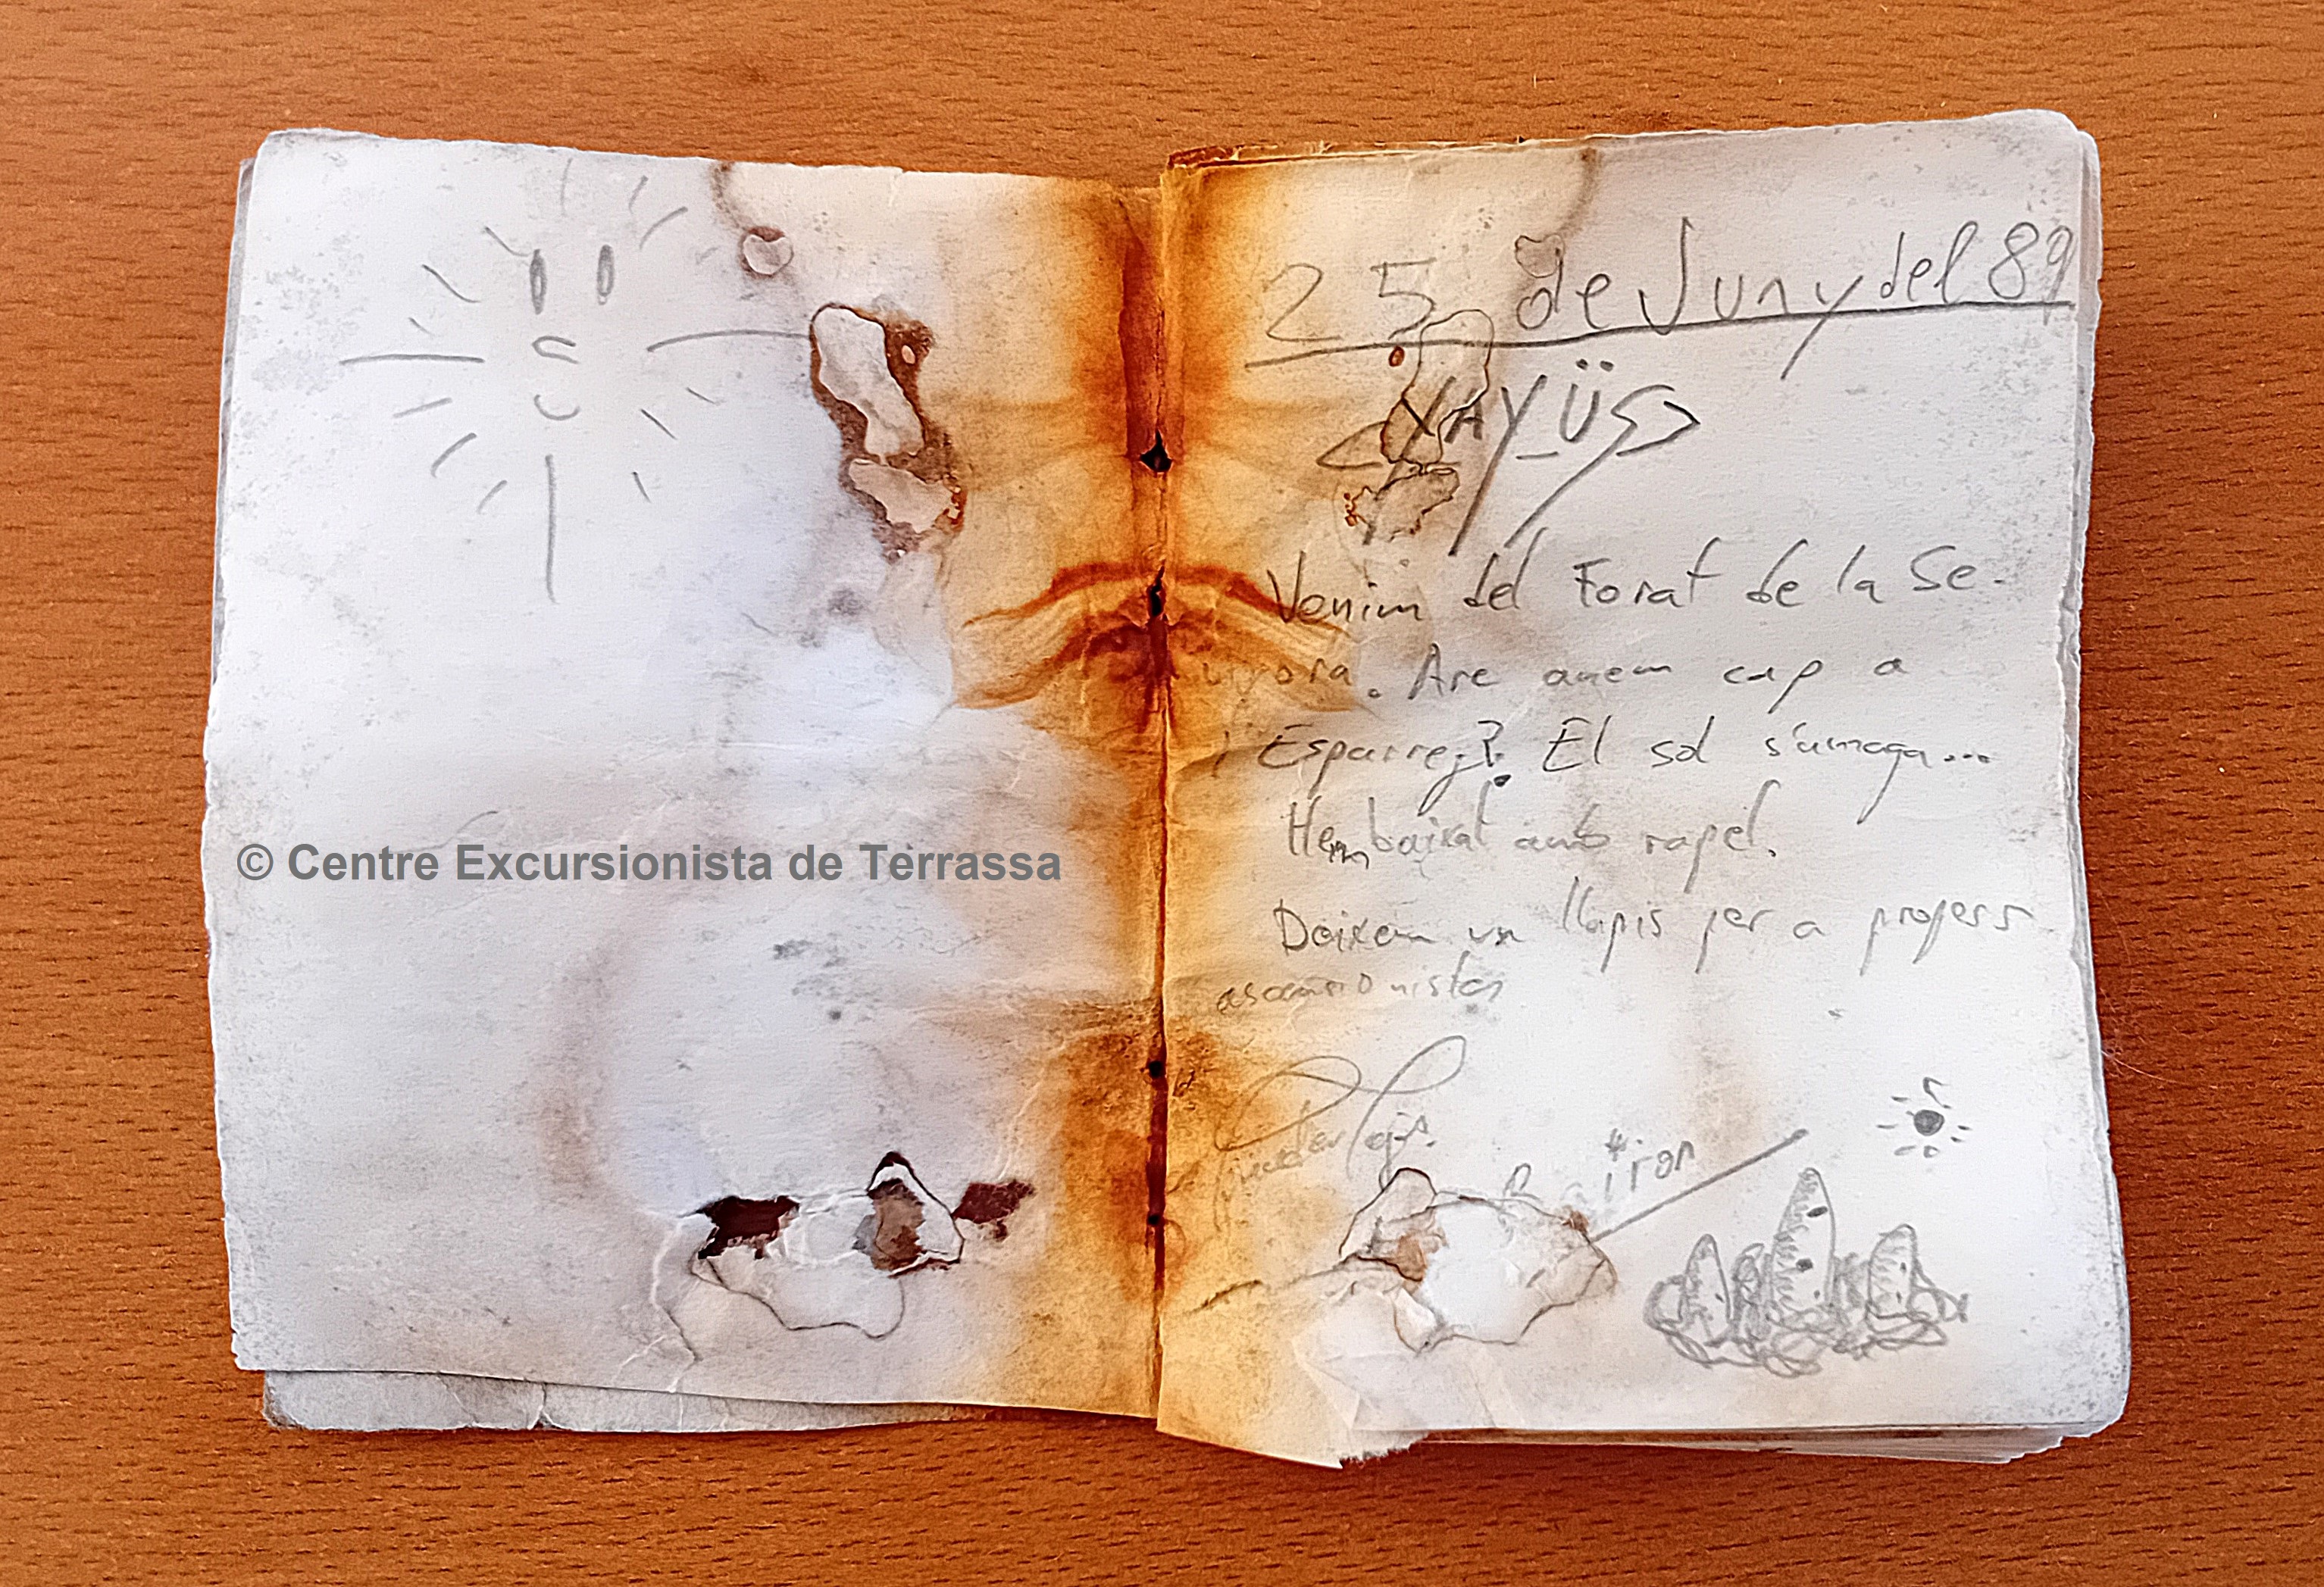 25 de Juny del 89
Venim del Forat de la Se-
. Are anem cap a
¿Esparreg? El sol s'amaga...
Hem baixat amb rapel.
Deixem un llapis per a propers
ascensionistes
© Centre Excursionista de Terrassa